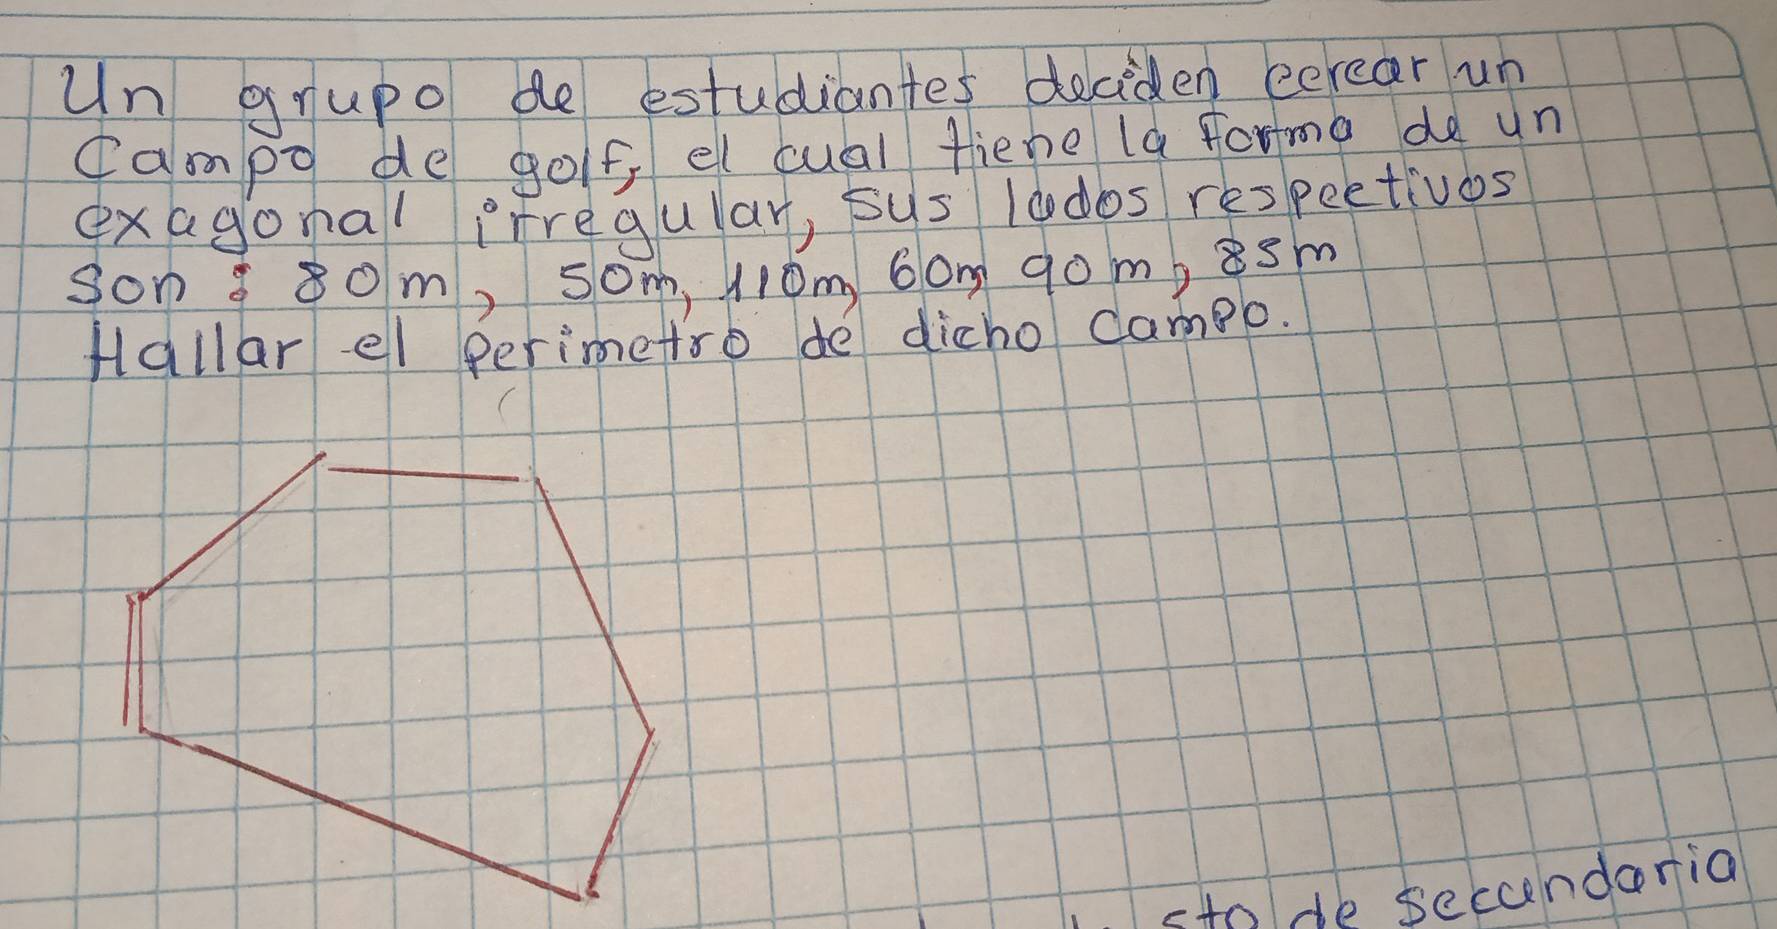 Un grupo de estudiantes deciden cercar un
Campo de golf, el cual tiene la forma de un
exagonal irregular, sus lados respectivos
son: 80m, 50m, 110m, 60m, 90m, 85m
Hallar el perimetro de dicho campo.
sto de secundaria